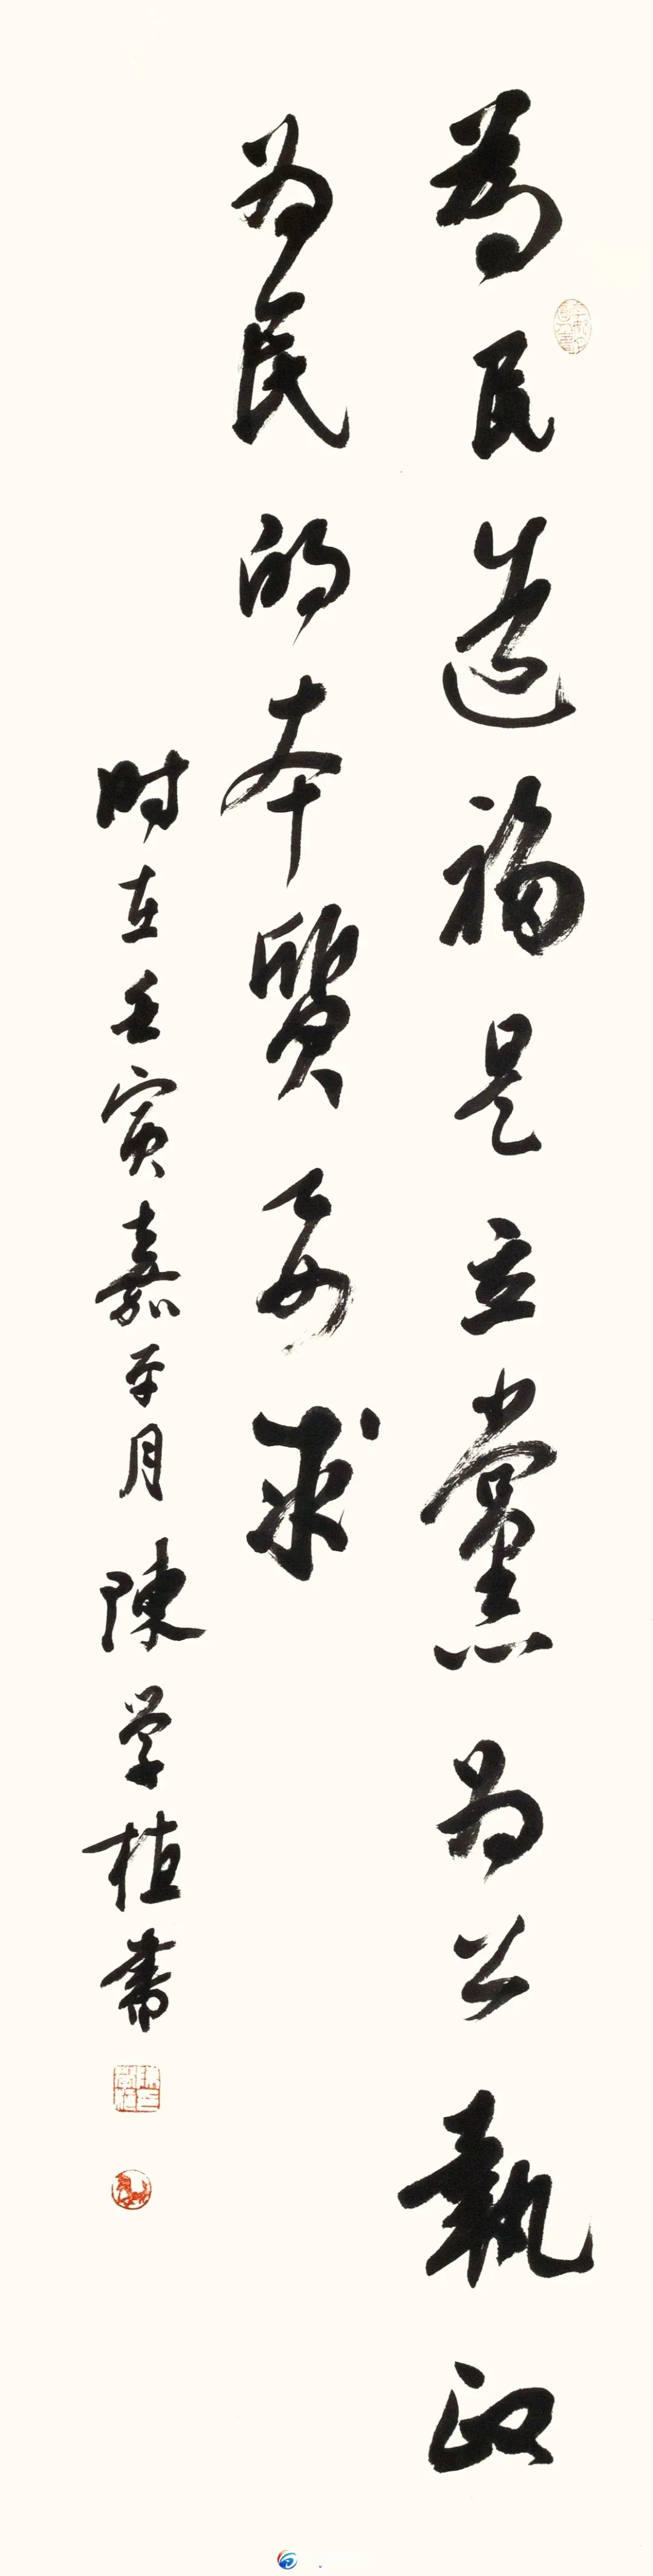 為民造福是立黨为公執政
为民的本質要求
时在壬寅嘉平月陳学植书